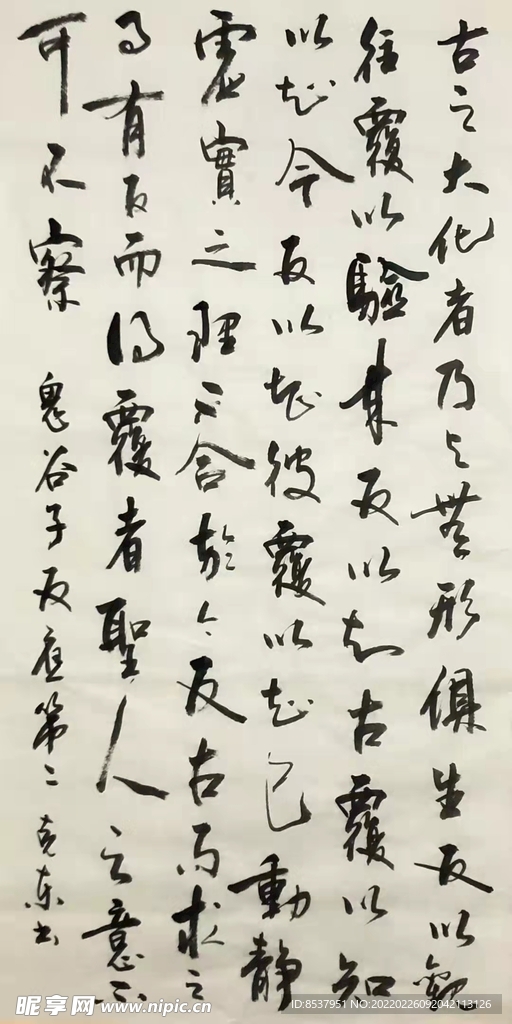 古之大化者乃与無形俱生反以觀
往覆以驗來反以知古覆以知
以知今反以知彼覆以知己動靜
虛實之理不合於今反古而求之
事有反而得覆者聖人之意不
可不察 鬼谷子反應第二 克東書
昵享网 www.nipic.cn
ID:8537951 NO:20220226092042113126